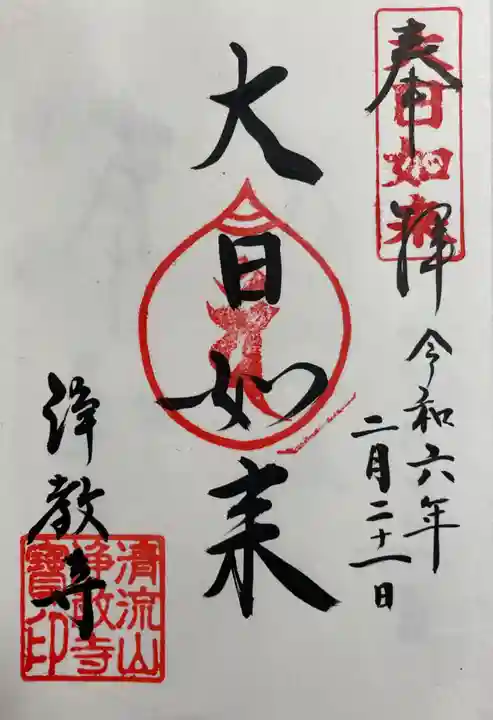 奉拝
大日如来
令和六年
二月二十一日
大日如来
浄教寺
清流山
浄教寺
寶印